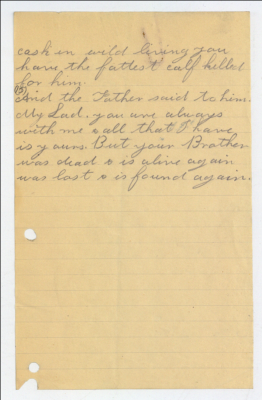 cash in wild living you
have the fattest calf killed
for him.
And the Father said to him.
My Lad, you are always
with me & all that I have
is yours. But your Brother
was dead & is alive again
was lost & is found again.